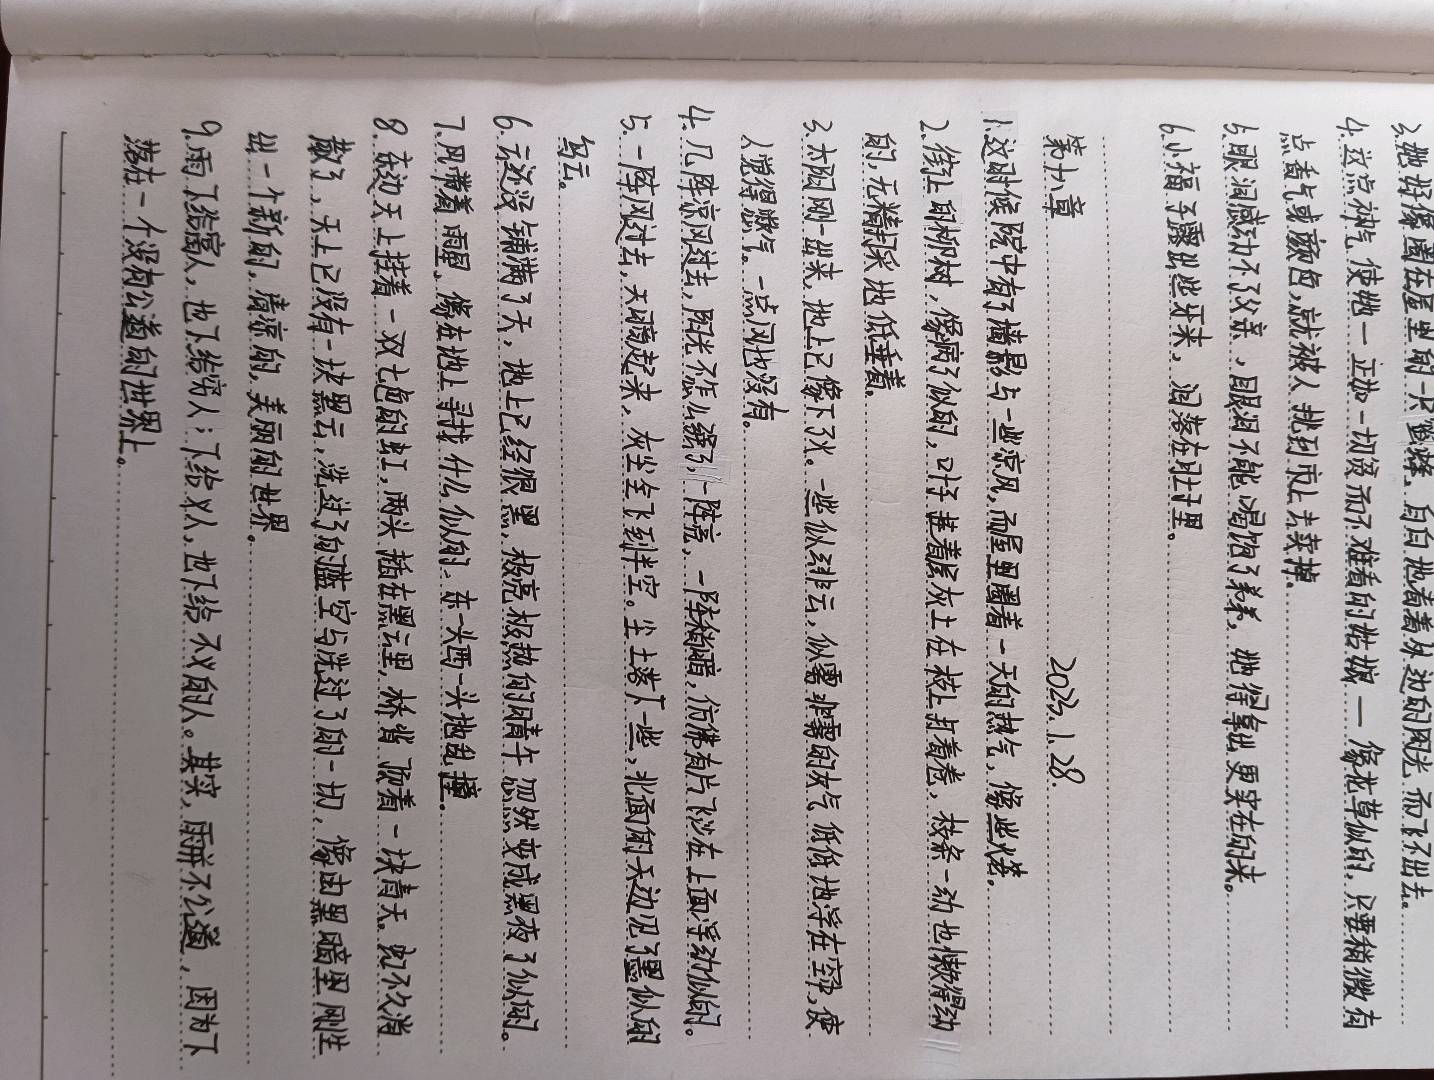 3.她好像圈在屋里的一只蜜蜂，白白地看着外边的阳光而飞不出去。
4.这点神气使她——正如一切贫而不难看的姑娘——像花草似的，只要稍微有
点香气或颜色，就被人挑到市上去卖掉。
5.眼泪感动不了父亲，眼泪不能喂饱了弟弟，她得拿出更实在的来。
6.小福子露出些牙来，泪落在肚子里。
第十八章 2023.1.28.
1.这时候院中有了墙影与一些凉风，而屋里圈着一天的热气，像些火笼。
2.街上的柳树，像病了似的，叶子挂着层灰土在枝上打着卷，枝条一动也懒得动
的，无精打采地低垂着。
3.太阳刚一出来，地上已像下了火。一些似云非云，似雾非雾的灰气低低地浮在空中，使
人觉得憋气。一点风也没有。
4.几阵凉风过去，阳光不怎么强了，一阵亮，一阵稍暗，仿佛有片飞沙在上面浮动似的。
5.一阵风过去，天暗起来，灰尘全飞到半空。尘土落下一些，北面的天边见了墨似的
乌云。
6.云还没铺满了天，地上已经很黑，极亮极热的晴午忽然变成黑夜了似的。
7.风带着雨星，像在地上寻找什么似的，东一头西一头地乱撞。
8.东边天上挂着一双七色的虹，两头插在黑云里，桥背顶着一块青天。虹不久消
散了，天上已没有一块黑云，洗过了的蓝空与洗过了的一切，像由黑暗里刚生
出一个新的，清凉的，美丽的世界。
9.雨下给富人，也下给穷人；下给义人，也下给不义的人。其实，雨并不公道，因为下
落在一个没有公道的世界上。